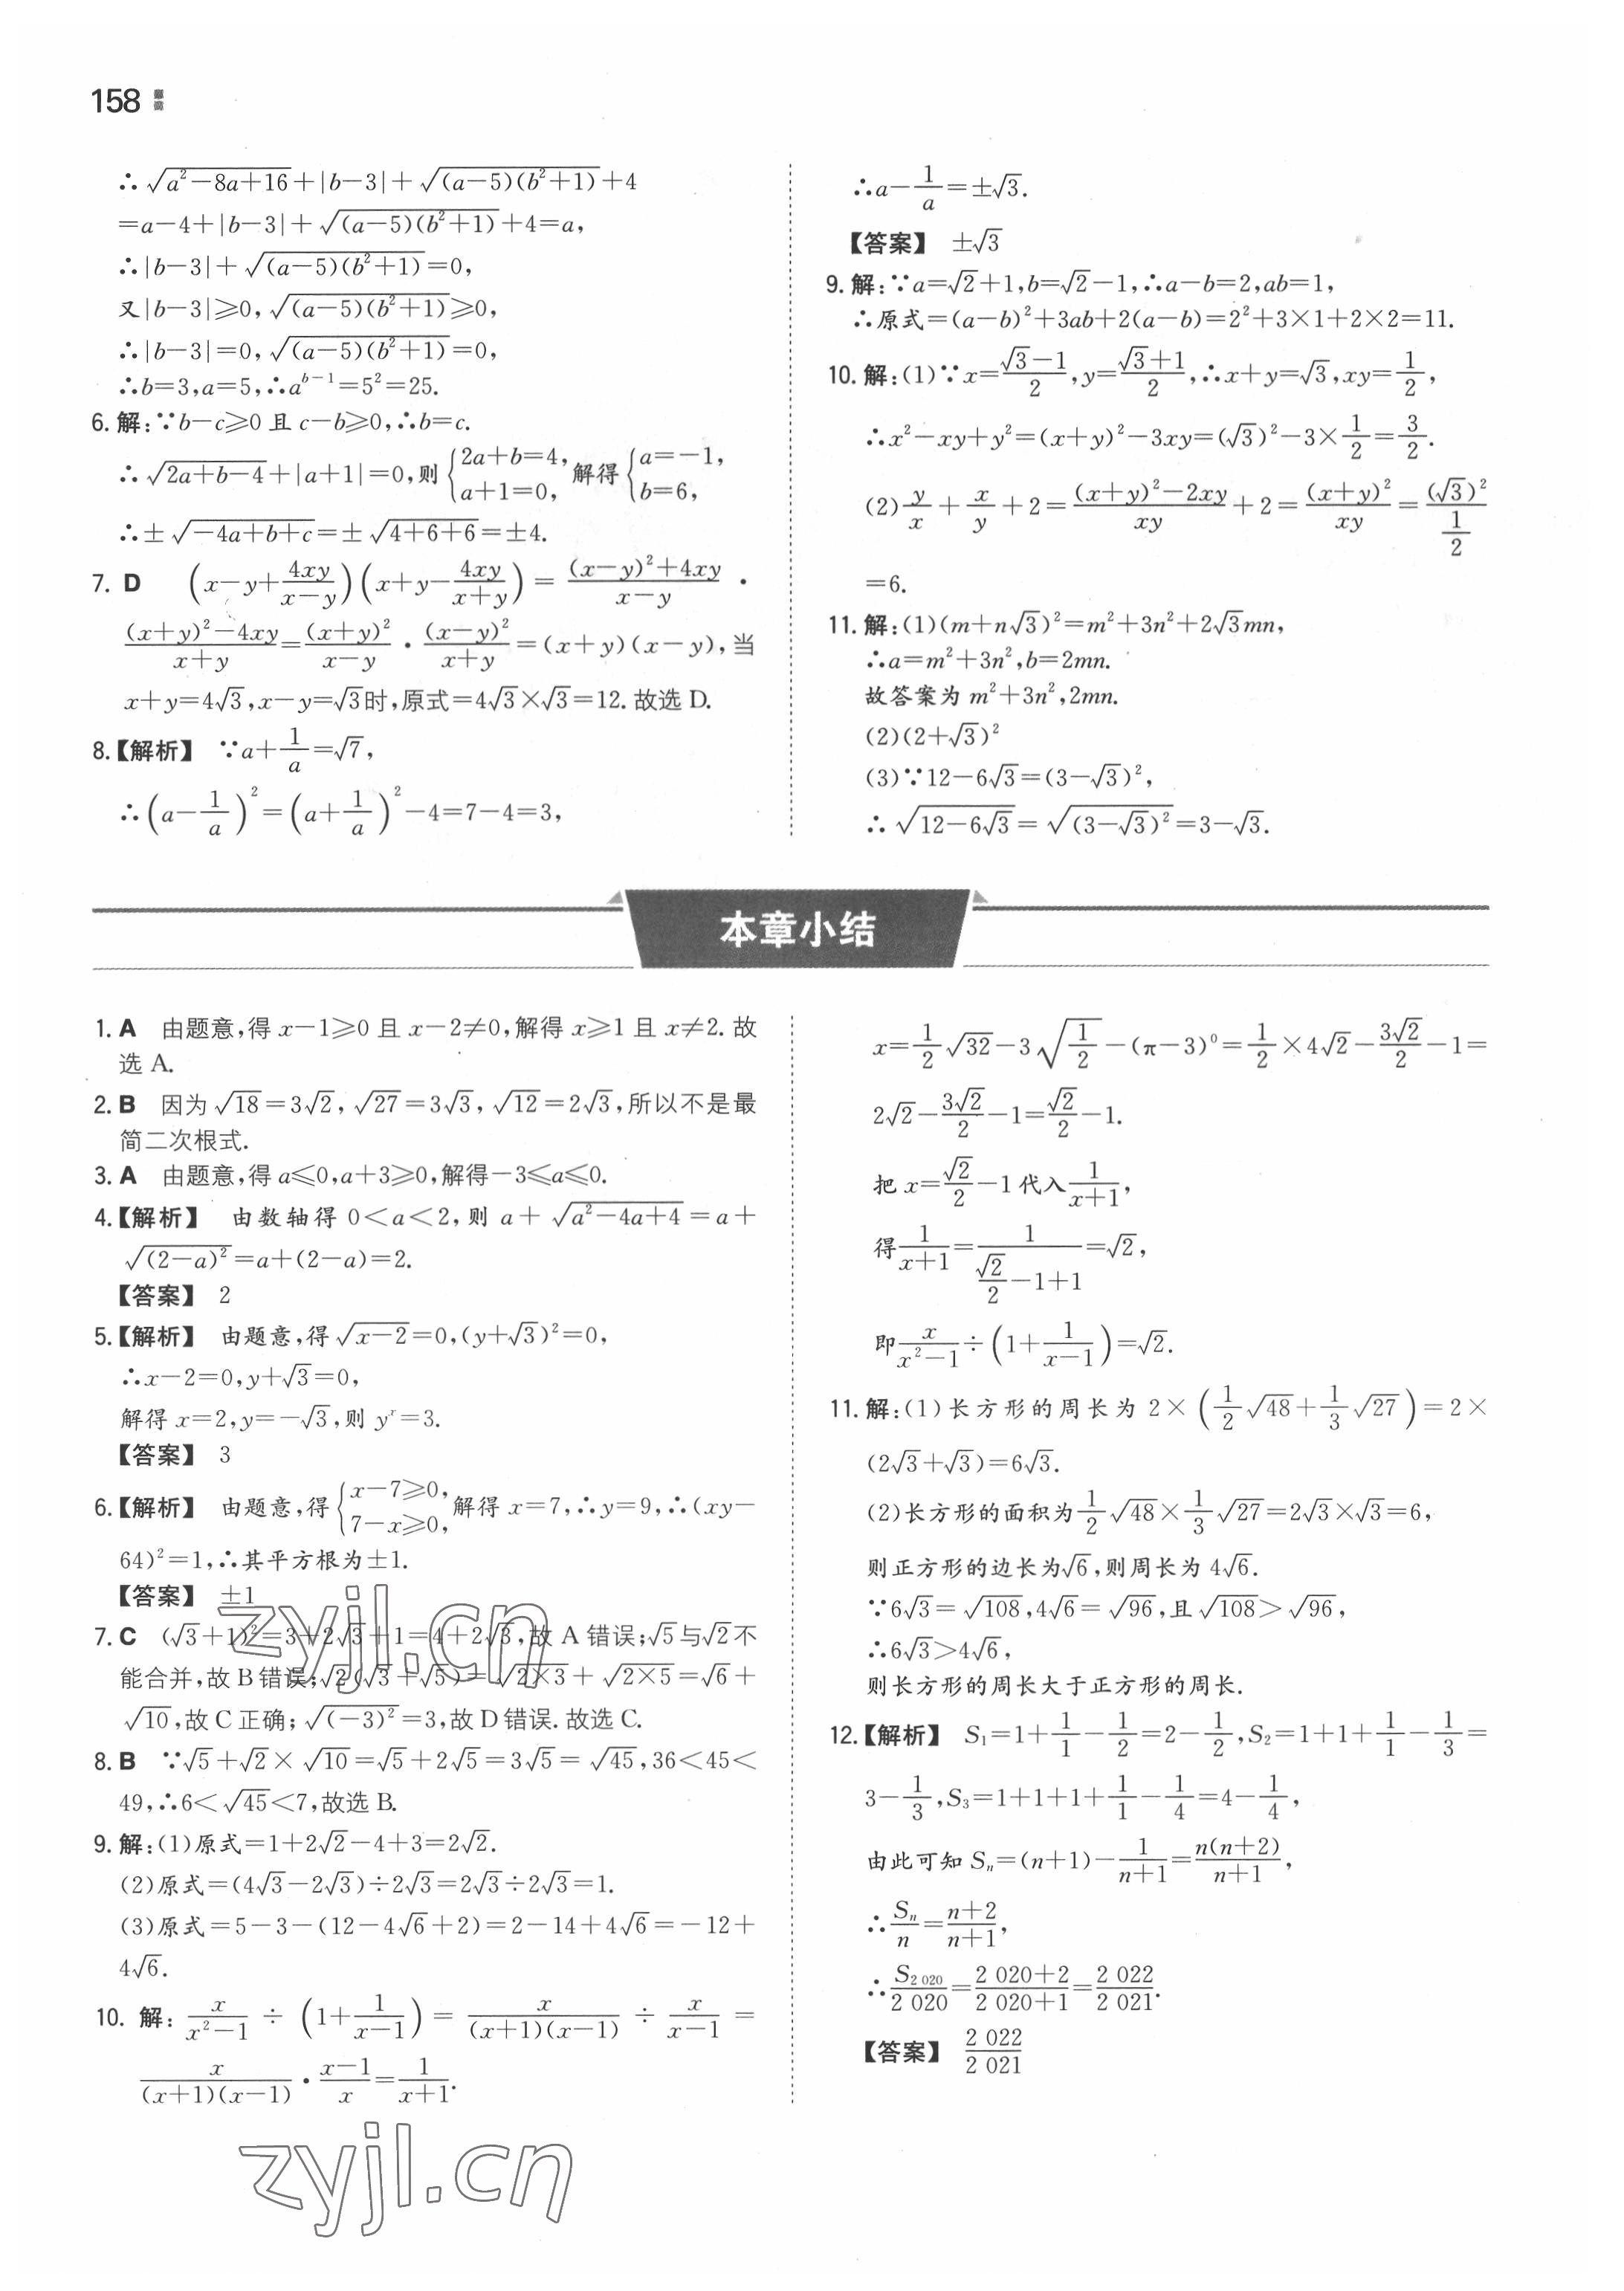 158
∴√(a²−8a+16)+|b−3|+√((a−5)(b²+1))+4
=a−4+|b−3|+√((a−5)(b²+1))+4=a,
∴|b−3|+√((a−5)(b²+1))=0,
又|b−3|≥0,√((a−5)(b²+1))≥0,
∴|b−3|=0,√((a−5)(b²+1))=0,
∴b=3,a=5,∴a^(b−1)=5²=25.
6.解:∵b−c≥0 且 c−b≥0,∴b=c.
∴√(2a+b−4)+|a+1|=0,则{2a+b=4, a+1=0, 解得{a=−1, b=6,
∴±√(−4a+b+c)=±√(4+6+6)=±4.
7. D (x−y+4xy/(x−y))(x+y−4xy/(x+y))=((x−y)²+4xy)/(x−y)·
((x+y)²−4xy)/(x+y)=(x+y)²/(x−y)·(x−y)²/(x+y)=(x+y)(x−y),当
x+y=4√3,x−y=√3时,原式=4√3×√3=12.故选 D.
8.【解析】 ∵a+1/a=√7,
∴(a−1/a)²=(a+1/a)²−4=7−4=3,
∴a−1/a=±√3.
【答案】 ±√3
9.解:∵a=√2+1,b=√2−1,∴a−b=2,ab=1,
∴原式=(a−b)²+3ab+2(a−b)=2²+3×1+2×2=11.
10.解:(1)∵x=(√3−1)/2,y=(√3+1)/2,∴x+y=√3,xy=1/2,
∴x²−xy+y²=(x+y)²−3xy=(√3)²−3×1/2=3/2.
(2)y/x+x/y+2=((x+y)²−2xy)/xy+2=(x+y)²/xy=(√3)²/(1/2)
=6.
11.解:(1)(m+n√3)²=m²+3n²+2√3mn,
∴a=m²+3n²,b=2mn.
故答案为 m²+3n²,2mn.
(2)(2+√3)²
(3)∵12−6√3=(3−√3)²,
∴√(12−6√3)=√((3−√3)²)=3−√3.
本章小结
1. A 由题意,得 x−1≥0 且 x−2≠0,解得 x≥1 且 x≠2.故
选 A.
2. B 因为√18=3√2,√27=3√3,√12=2√3,所以不是最
简二次根式.
3. A 由题意,得 a≤0,a+3≥0,解得−3≤a≤0.
4.【解析】 由数轴得 0<a<2,则 a+√(a²−4a+4)=a+
√((2−a)²)=a+(2−a)=2.
【答案】 2
5.【解析】 由题意,得√(x−2)=0,(y+√3)²=0,
∴x−2=0,y+√3=0,
解得 x=2,y=−√3,则 yˣ=3.
【答案】 3
6.【解析】 由题意,得{x−7≥0, 7−x≥0, 解得 x=7,∴y=9,∴(xy−
64)²=1,∴其平方根为±1.
【答案】 ±1
7. C (√3+1)²=3+2√3+1=4+2√3,故 A 错误;√5与√2不
能合并,故 B 错误;√2(√3+√5)=√(2×3)+√(2×5)=√6+
√10,故 C 正确;√((−3)²)=3,故 D 错误.故选 C.
8. B ∵√5+√2×√10=√5+2√5=3√5=√45,36<45<
49,∴6<√45<7,故选 B.
9.解:(1)原式=1+2√2−4+3=2√2.
(2)原式=(4√3−2√3)÷2√3=2√3÷2√3=1.
(3)原式=5−3−(12−4√6+2)=2−14+4√6=−12+
4√6.
10. 解: x/(x²−1)÷(1+1/(x−1))=x/((x+1)(x−1))÷x/(x−1)=
x/((x+1)(x−1))·(x−1)/x=1/(x+1).
x=1/2√32−3√(1/2)−(π−3)⁰=1/2×4√2−3√2/2−1=
2√2−3√2/2−1=√2/2−1.
把 x=√2/2−1 代入1/(x+1),
得1/(x+1)=1/(√2/2−1+1)=√2,
即x/(x²−1)÷(1+1/(x−1))=√2.
11.解:(1)长方形的周长为 2×(1/2√48+1/3√27)=2×
(2√3+√3)=6√3.
(2)长方形的面积为1/2√48×1/3√27=2√3×√3=6,
则正方形的边长为√6,则周长为 4√6.
∵6√3=√108,4√6=√96,且√108>√96,
∴6√3>4√6,
则长方形的周长大于正方形的周长.
12.【解析】 S₁=1+1/1−1/2=2−1/2,S₂=1+1+1/1−1/3=
3−1/3,S₃=1+1+1+1/1−1/4=4−1/4,
由此可知 Sₙ=(n+1)−1/(n+1)=n(n+2)/(n+1),
∴Sₙ/n=(n+2)/(n+1),
∴S₂ ₀₂₀/2 020=(2 020+2)/(2 020+1)=2 022/2 021.
【答案】 2 022/2 021
zyjl.cn
zyjl.cn